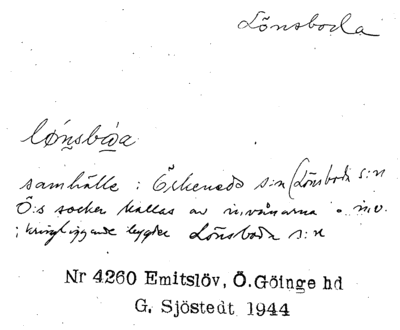 Lönsboda
lǿnsbʷa
samhälle : Örkeneds s:n (Lönsboda s:n
Ö:s socken kallas av invånarna o. inv.
i kringliggande bygder Lönsboda s:n
Nr 4260 Emitslöv, Ö.Göinge hd
G. Sjöstedt 1944